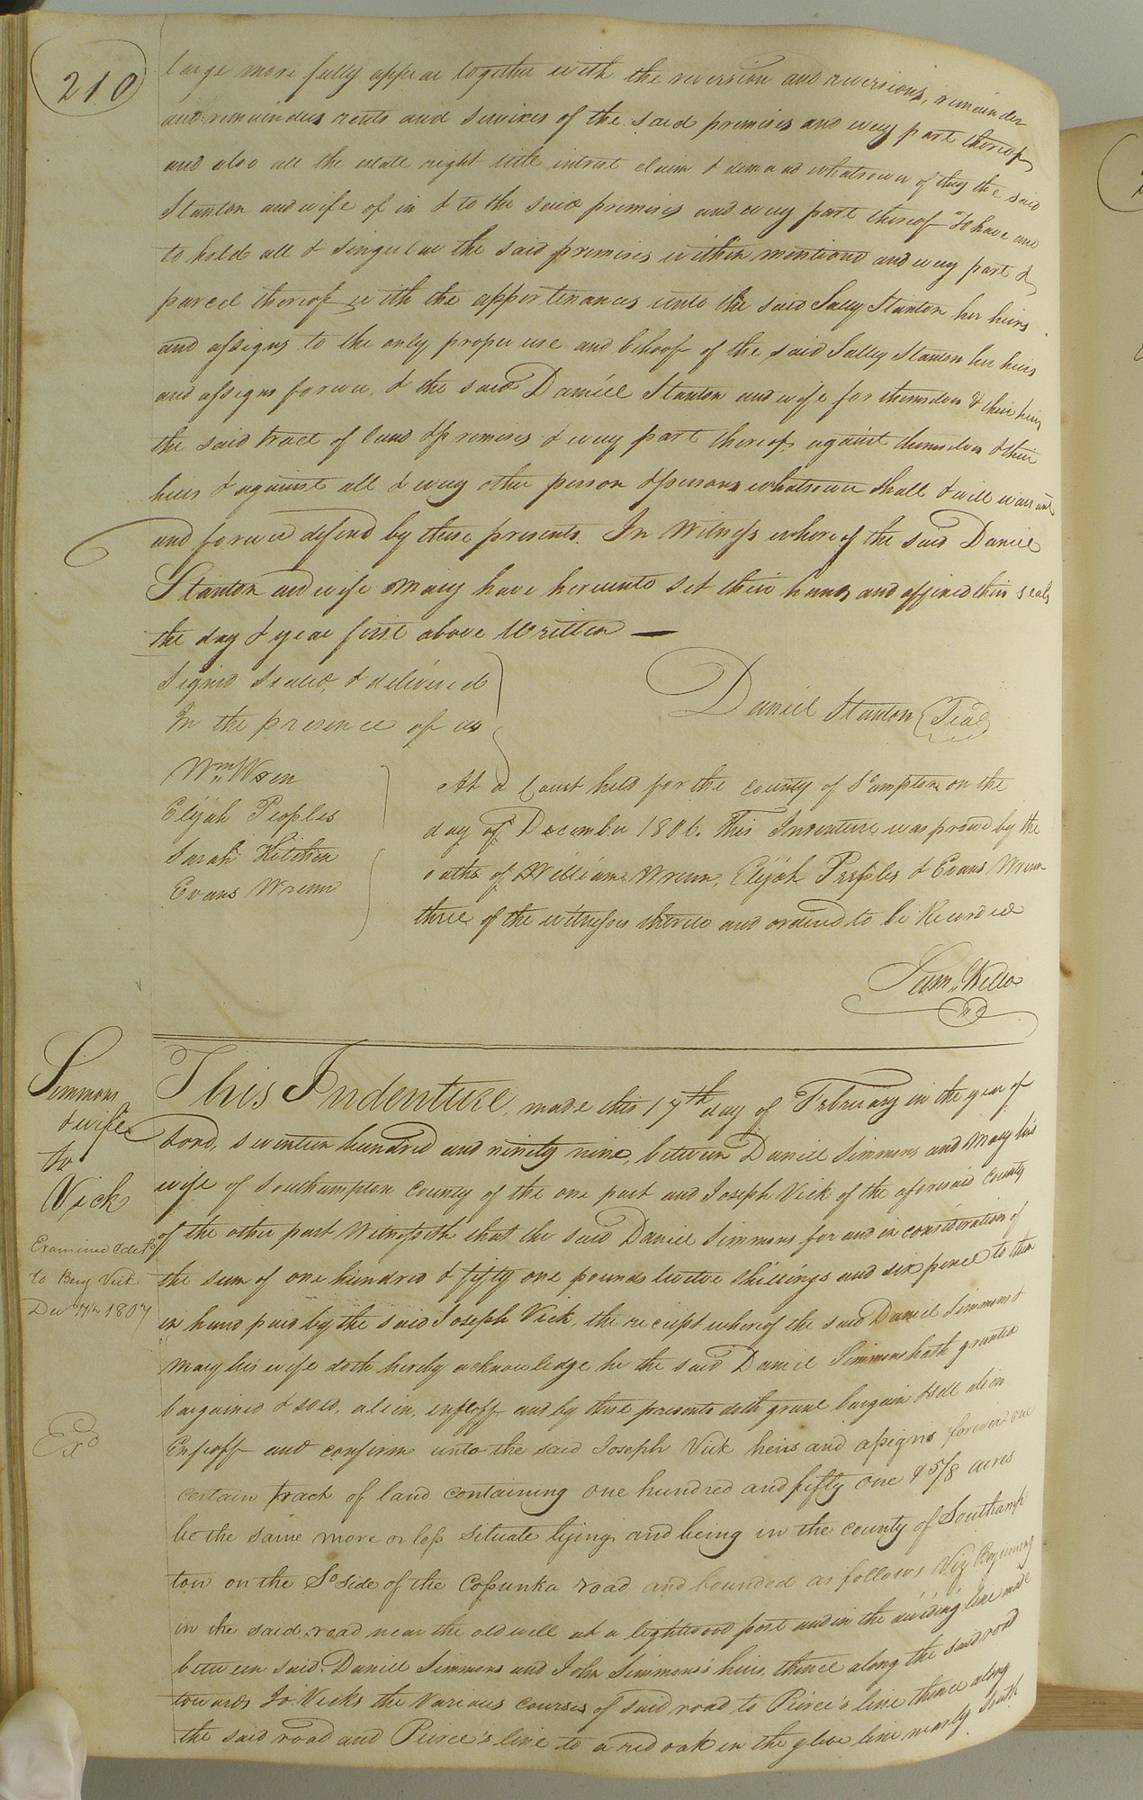 210
large more fully appear together with the reversion and reversions, remainder
and remainders rents and services of the said premises and evey part thereof
and also all the estate right title intrest claim & demand whatsoever of they the said
Stanton and wife of in & to the said premises and evey part thereof To have and
to hold all & singular the said premises within mentioned and evey part &
parcel thereof with the appertinances unto the said Sally Stanton her heirs
and assigns to the only proper use and behoof of the said Sally Stanton her heirs
and assigns forever, & the said Daniel Stanton and wife for themselves & their heirs
the said tract of land & premises & evey part thereof against themselves & their
heirs & against all & evey other person & persons whatsoever shall & will warrant
and forever defend by these presents. In Witness whereof the said Daniel
Stanton and wife Mary have hereunto set their hands and affixed their seals
the day & year first above Written —
Signed Sealed, & delivered
In the presence of us
Daniel Stanton (Seal)
Wm Wren
Elijah Peoples
Sarah Kitchen
Evans Wrenn
At a Court held for the county of S'ampton on the
day of December 1806. This Indenture was proved by the
oaths of William Wrenn, Elijah Peoples & Evans Wrenn
three of the witnesses thereto and ordered to be Recorded
Sam. Kello
Simmons
& wife
to
Vick
Examined & del'd
to Benj Vick
Dec 7th 1807
Exd
This Indenture, made this 17th day of February in the year of
Lord, seventeen hundred and ninety nine, between Daniel Simmons and Mary his
wife of Southampton County of the one part and Joseph Vick of the aforesaid County
of the other part Witnesseth that the said Daniel Simmons for and in consideration of
the sum of one hundred & fifty one pounds twelve shillings and six pence to them
in hand paid by the said Joseph Vick, the reciept whereof the said Daniel Simmons &
Mary his wife doth hereby acknowledge he the said Daniel Simmons hath granted
bargained & sold, alien, enfeoff and by these presents doth grant bargain & sell alien
Enfeoff and confirm unto the said Joseph Vick heirs and assigns forever one
certain tract of land containing one hundred and fifty one & 5/8 acres
be the same more or less situate lying and being in the county of Southamp
ton on the So side of the Cosunka road and bounded as follows Viz Begining
in the said road near the old well at a lightwood post and in the dividing line made
between said Daniel Simmons and John Simmons's heirs, thence along the said road
towards Jo Vicks the Various courses of said road to Peirce's line thence along
the said road and Peirce's line to a red oak in the glebe line nearly South